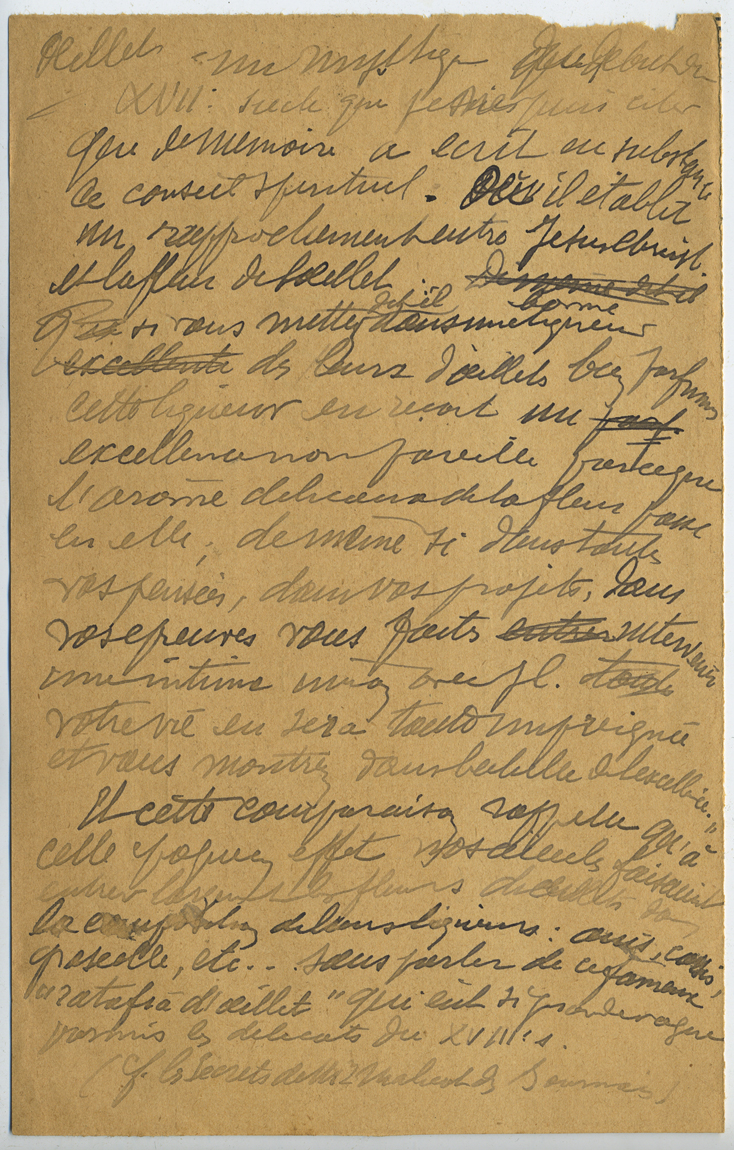 Œillets - un mystique du début du
XVII: siècle que je ne puis citer
que de memoire a ecrit en substance
ce conseil spirituel. Où il établit
un rapprochement entre Jesus Christ.
et la fleur de l'œillet
si vous mettez dit-il dans une bonne liqueur
excellente de fleurs d'œillets bien parfumés
cette liqueur en reçoit un
excellence non pareille parceque
l'arome delicieux de la fleur passe
en elle; de même si dans toutes
vos pensées, dans vos projets, dans
vos epreuves vous faites entrer intervenir
une intime union avec J. toute
votre vie en sera toute impregnée
et vous montrez dans l'echelle de l'excellence."
Et cette comparaison rappelle qu'à
celle epoque en effet nos aïeules faisaient
entrer largement les fleurs d'œillets dans
la composition de leurs liqueurs: anis, cassis,
groseille, etc... sans parler de ce fameux
"ratafia d'œillet" qui eût si grande vogue
parmis les delicats du XVII: s.
(cf. les Secrets de